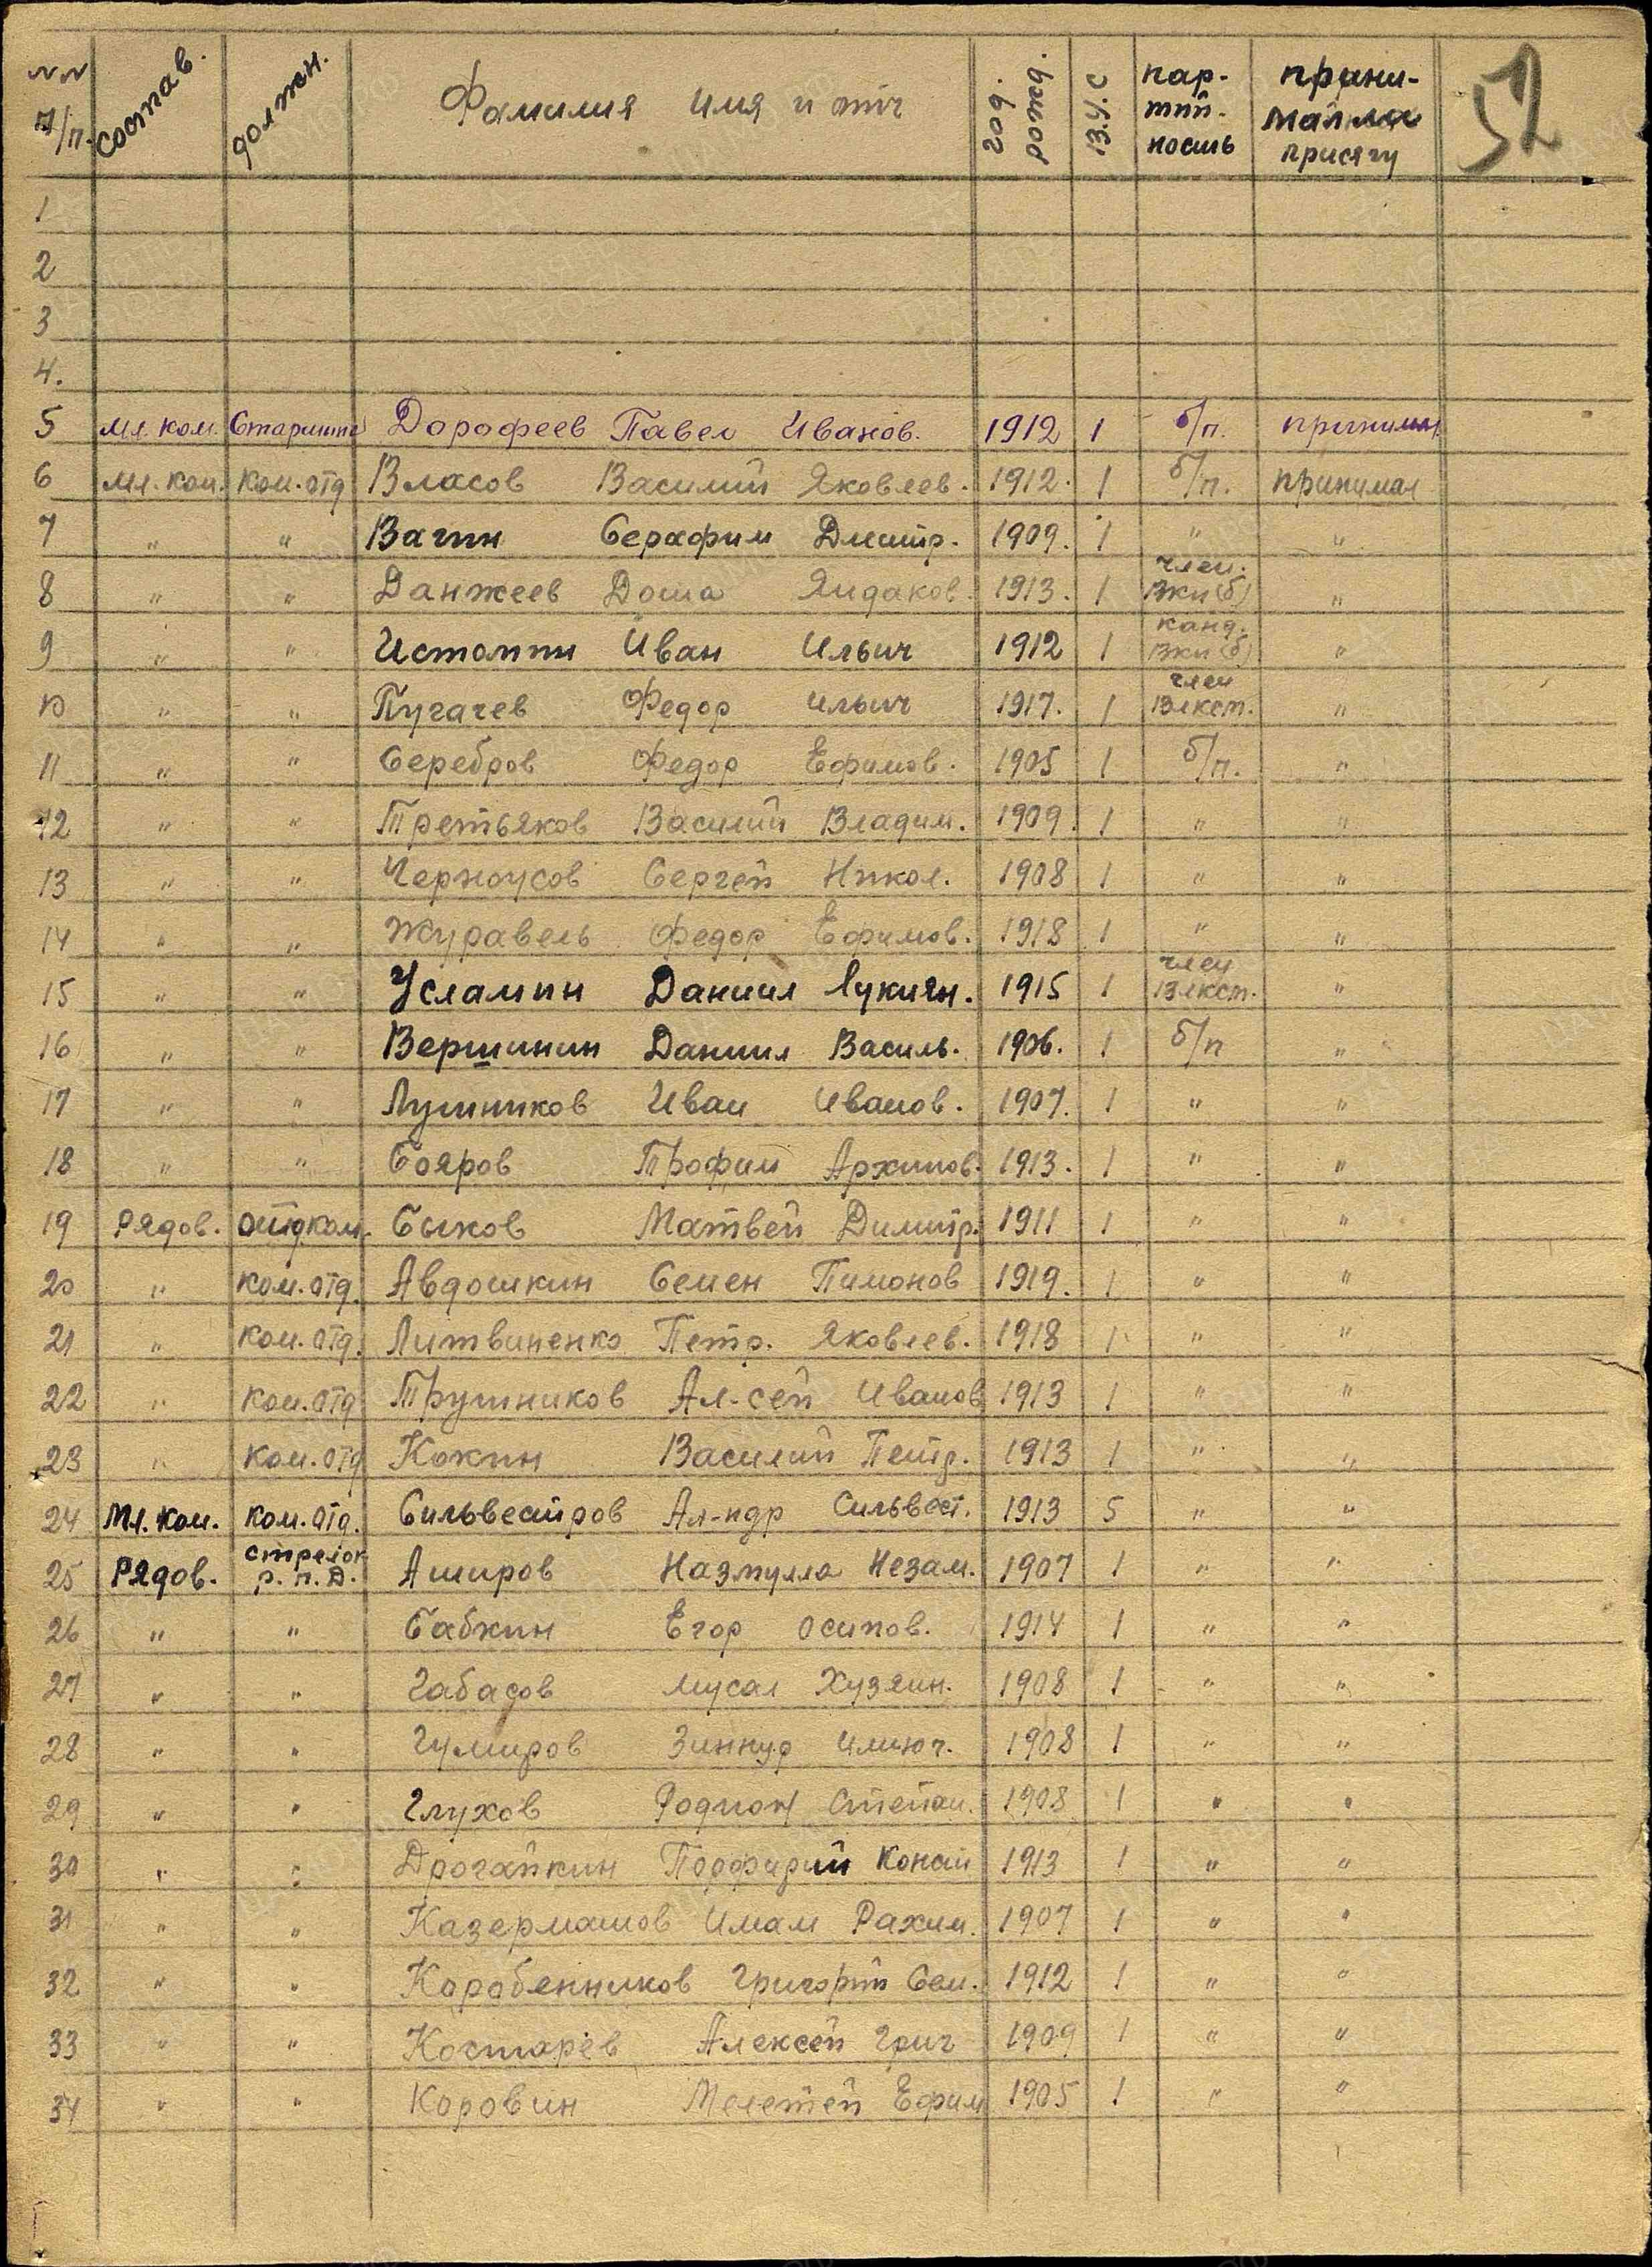 №№ п/п. состав. должн. Фамилия имя и отч год. рожд. В.У.С пар-тий-ность прини-мал ли присягу 52
1
2
3
4.
5 Мл. ком. Старшина Дорофеев Павел Иванов. 1912 1 б/п. принимал
6 Мл. ком. Ком. отд Власов Василий Яковлев. 1912. 1 б/п. принимал
7 " " Вагин Серафим Дмитр. 1909. 1 " "
8 " " Данжеев Доша Яндаков. 1913. 1 член. ВКП(б) "
9 " " Истомин Иван Ильич 1912 1 канд. ВКП(б) "
10 " " Пугачев Федор Ильич 1917. 1 член ВЛКСМ. "
11 " " Серебров Федор Ефимов. 1905 1 б/п. "
12 " " Третьяков Василий Владим. 1909. 1 " "
13 " " Черноусов Сергей Никол. 1908 1 " "
14 " " Журавель Федор Ефимов. 1918 1 " "
15 " " Усламин Даниил Лукичн. 1915 1 член ВЛКСМ. "
16 " " Вершинин Даниил Василь. 1906. 1 б/п "
17 " " Лушников Иван Иванов. 1907. 1 " "
18 " " Бояров Трофим Архипов. 1913. 1 " "
19 Рядов. отд.ком. Быков Матвей Димитр. 1911 1 " "
20 " ком. отд. Авдошкин Семен Пимонов 1919. 1 " "
21 " ком. отд. Литвиненко Петр. Яковлев. 1918 1 " "
22 " ком. отд Трушников Ал-сей Иванов 1913 1 " "
23 " ком. отд Кокин Василий Петр. 1913 1 " "
24 Мл. ком. ком. отд. Сильвестров Ал-ндр Сильвест. 1913 5 " "
25 Рядов. стрелок р. п. Д. Аширов Назмулла Незам. 1907 1 " "
26 " " Бабкин Егор Осипов. 1914 1 " "
27 " " Габасов Мусал Хузяин. 1908 1 " "
28 " " Гумиров Зиннур 1908 1 " "
29 " " Глухов Родион Степан. 1908 1 " "
30 " " Дрогайкин Порфирий 1913 1 " "
31 " " Казермашов Имам Рахим. 1907 1 " "
32 " " Коробенников Григорий Сем. 1912 1 " "
33 " " Костарев Алексей Григ 1909 1 " "
34 " " Коровин Мелетей Ефим 1905 1 " "